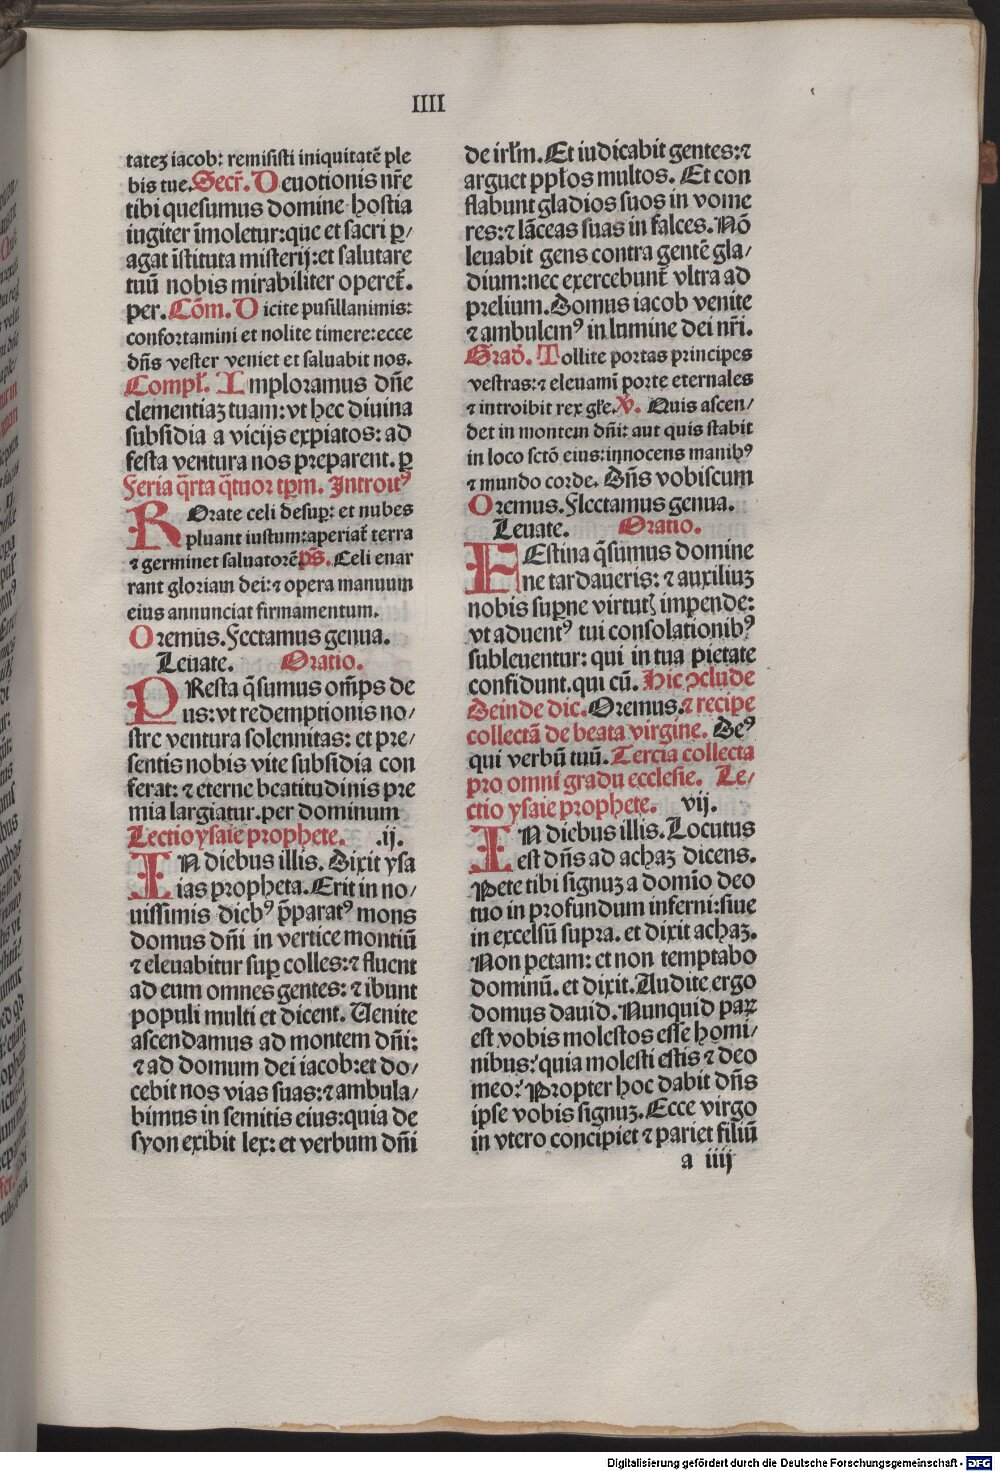 IIII
tateʒ iacob: remisisti iniquitatē ple
bis tue. Secr̄. Deuotionis nr̄e
tibi quesumus domine hostia
iugiter īmoletur: que et sacri ꝑ/
agat īstituta misterij: et salutare
tuū nobis mirabiliter operet̄.
per. Cōm. Dicite pusillanimis:
confortamini et nolite timere: ecce
dn̄s vester veniet et saluabit nos.
Compl̄. Imploramus dn̄e
clementiaʒ tuam: vt hec diuina
subsidia a vicijs expiatos: ad
festa ventura nos preparent. ꝑ
Feria q̄rta q̄tuor tꝑm. Introitꝰ
ROrate celi desuꝑ: et nubes
pluant iustum: aperiat̄ terra
⁊ germinet saluatorē p̄s. Celi enar
rant gloriam dei: ⁊ opera manuum
eius annunciat firmamentum.
Oremus. Fectamus genua.
Leuate. Oratio.
PResta q̄sumus om̄ps de
us: vt redemptionis no/
stre ventura solennitas: et pre/
sentis nobis vite subsidia con
ferat: ⁊ eterne beatitudinis pre
mia largiatur. per dominum
Lectio ysaie prophete. .ij.
IN diebus illis. Dixit ysa
ias propheta. Erit in no/
uissimis diebꝰ p̄paratꝰ mons
domus dn̄i in vertice montiū
⁊ eleuabitur suꝑ colles: ⁊ fluent
ad eum omnes gentes: ⁊ ibunt
populi multi et dicent. Uenite
ascendamus ad montem dn̄i:
⁊ ad domum dei iacob: et do/
cebit nos vias suas: ⁊ ambula/
bimus in semitis eius: quia de
syon exibit lex: et verbum dn̄i
de irl̄m. Et iudicabit gentes: ⁊
arguet ppl̄os multos. Et con
flabunt gladios suos in vome
res: ⁊ lāceas suas in falces. Nō
leuabit gens contra gentē gla/
dium: nec exercebunt̄ vltra ad
prelium. Domus iacob venite
⁊ ambulemꝰ in lumine dei nr̄i.
Grad̄. Tollite portas principes
vestras: ⁊ eleuamī porte eternales
⁊ introibit rex gl̄e. V̄. Quis ascen/
det in montem dn̄i: aut quis stabit
in loco sctō eius: innocens manibꝰ
⁊ mundo corde. Dn̄s vobiscum
Oremus. Flectamus genua.
Leuate. Oratio.
FEstina q̄sumus domine
ne tardaueris: ⁊ auxiliuʒ
nobis suꝑne virtutꝭ impende:
vt aduentꝰ tui consolationibꝰ
subleuentur: qui in tua pietate
confidunt. qui cū. Hic ↄclude
Deinde dic. Oremus. ⁊ recipe
collectā de beata virgine. Deꝰ
qui verbū tuū. Tercia collecta
pro omni gradu ecclesie. Le/
ctio ysaie prophete. vij.
IN diebus illis. Locutus
est dn̄s ad achaʒ dicens.
Pete tibi signuʒ a domīo deo
tuo in profundum inferni: siue
in excelsū supra. et dixit achaʒ.
Non petam: et non temptabo
dominū. et dixit. Audite ergo
domus dauid. Nunquid paꝝ
est vobis molestos esse homi/
nibus? quia molesti estis ⁊ deo
meo? Propter hoc dabit dn̄s
ipse vobis signuʒ. Ecce virgo
in vtero concipiet ⁊ pariet filiū
a iiij
Digitalisierung gefördert durch die Deutsche Forschungsgemeinschaft - DFG